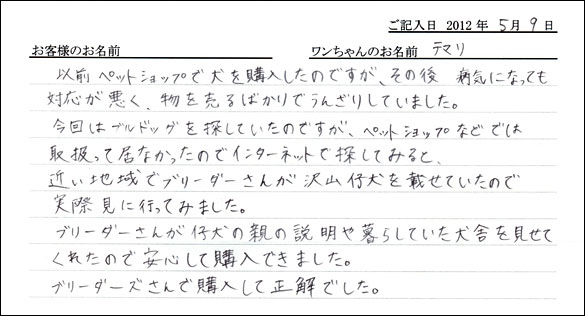 ご記入日 2012年 5月 9日
お客様のお名前 ワンちゃんのお名前 テマリ
以前ペットショップで犬を購入したのですが、その後 病気になっても
対応が悪く、物を売るばかりでうんざりしていました。
今回はブルドッグを探していたのですが、ペットショップなどでは
取扱って居なかったのでインターネットで探してみると、
近い地域でブリーダーさんが沢山仔犬を載せていたので
実際見に行ってみました。
ブリーダーさんが仔犬の親の説明や暮らしていた犬舎を見せて
くれたので安心して購入できました。
ブリーダーズさんで購入して正解でした。